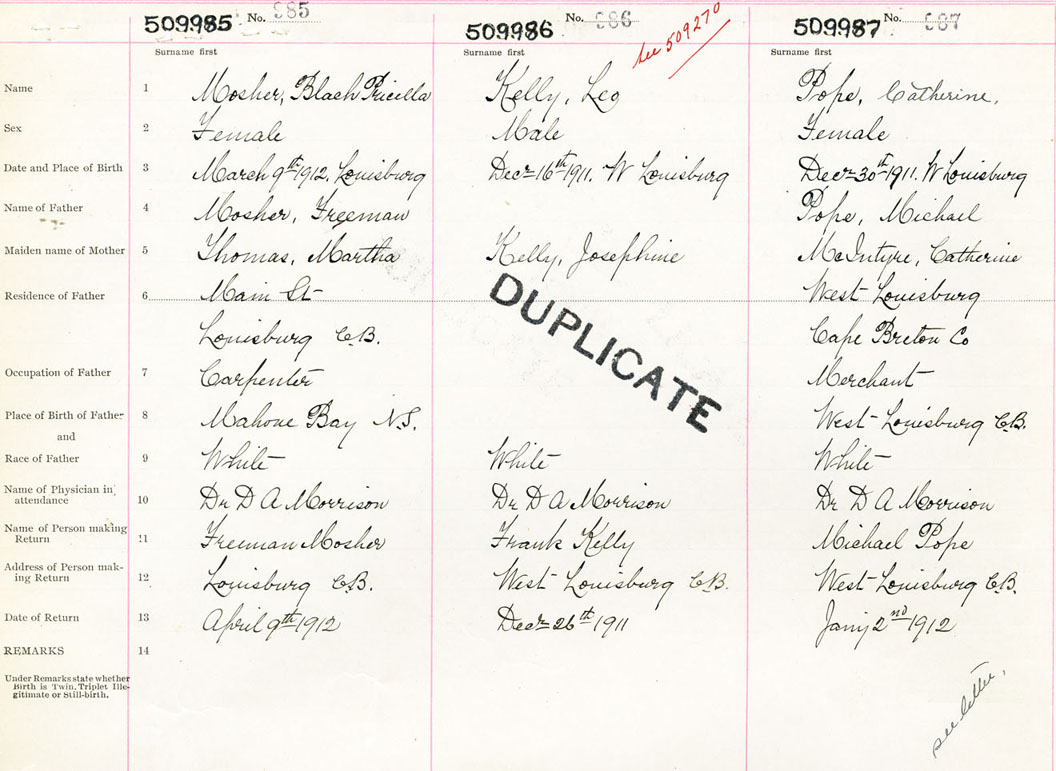 509985 No. 985 509986 No. 986 see 509270 509987 No. 987
Surname first Surname first Surname first
Name 1 Mosher, Blach Pricilla Kelly, Leo Pope, Catherine,
Sex 2 Female Male Female
Date and Place of Birth 3 March 9th 1912, Louisburg Decr 16th 1911. W Louisburg Decr 30th 1911. W Louisburg
Name of Father 4 Mosher, Freeman Pope, Michael
Maiden name of Mother 5 Thomas, Martha Kelly, Josephine McIntyre, Catherine
Residence of Father 6 Main St West Louisburg
DUPLICATE
Louisburg C.B. Cape Breton Co
Occupation of Father 7 Carpenter Merchant
Place of Birth of Father 8 Mahone Bay N.S. West Louisburg C.B.
and
Race of Father 9 White White White
Name of Physician in
attendance 10 Dr D A Morrison Dr D A Morrison Dr D A Morrison
Name of Person making
Return 11 Freeman Mosher Frank Kelly Michael Pope
Address of Person mak-
ing Return 12 Louisburg C.B. West Louisburg C.B. West Louisburg C.B.
Date of Return 13 April 9th 1912 Decr 26th 1911 Jany 2nd 1912
REMARKS 14
Under Remarks state whether
Birth is Twin, Triplet Ille-
gitimate or Still-birth.
see letter,